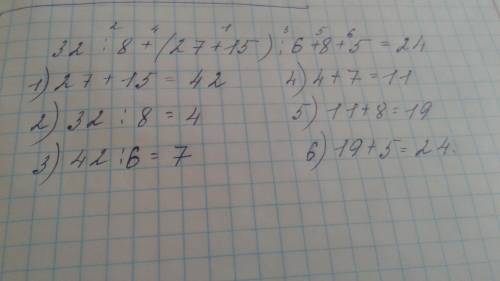 2 4 1 3 5 6
32 : 8 + (27 + 15) : 6 + 8 + 5 = 24
1) 27 + 15 = 42
2) 32 : 8 = 4
3) 42 : 6 = 7
4) 4 + 7 = 11
5) 11 + 8 = 19
6) 19 + 5 = 24.